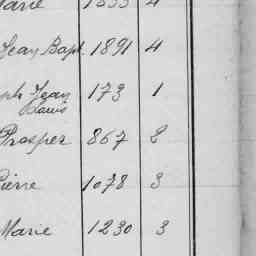 Marie 1855 4
Jean Bapt 1891 4
ph Jean 173 1
Louis
Prosper 867 2
Pierre 1078 3
Marie 1230 3